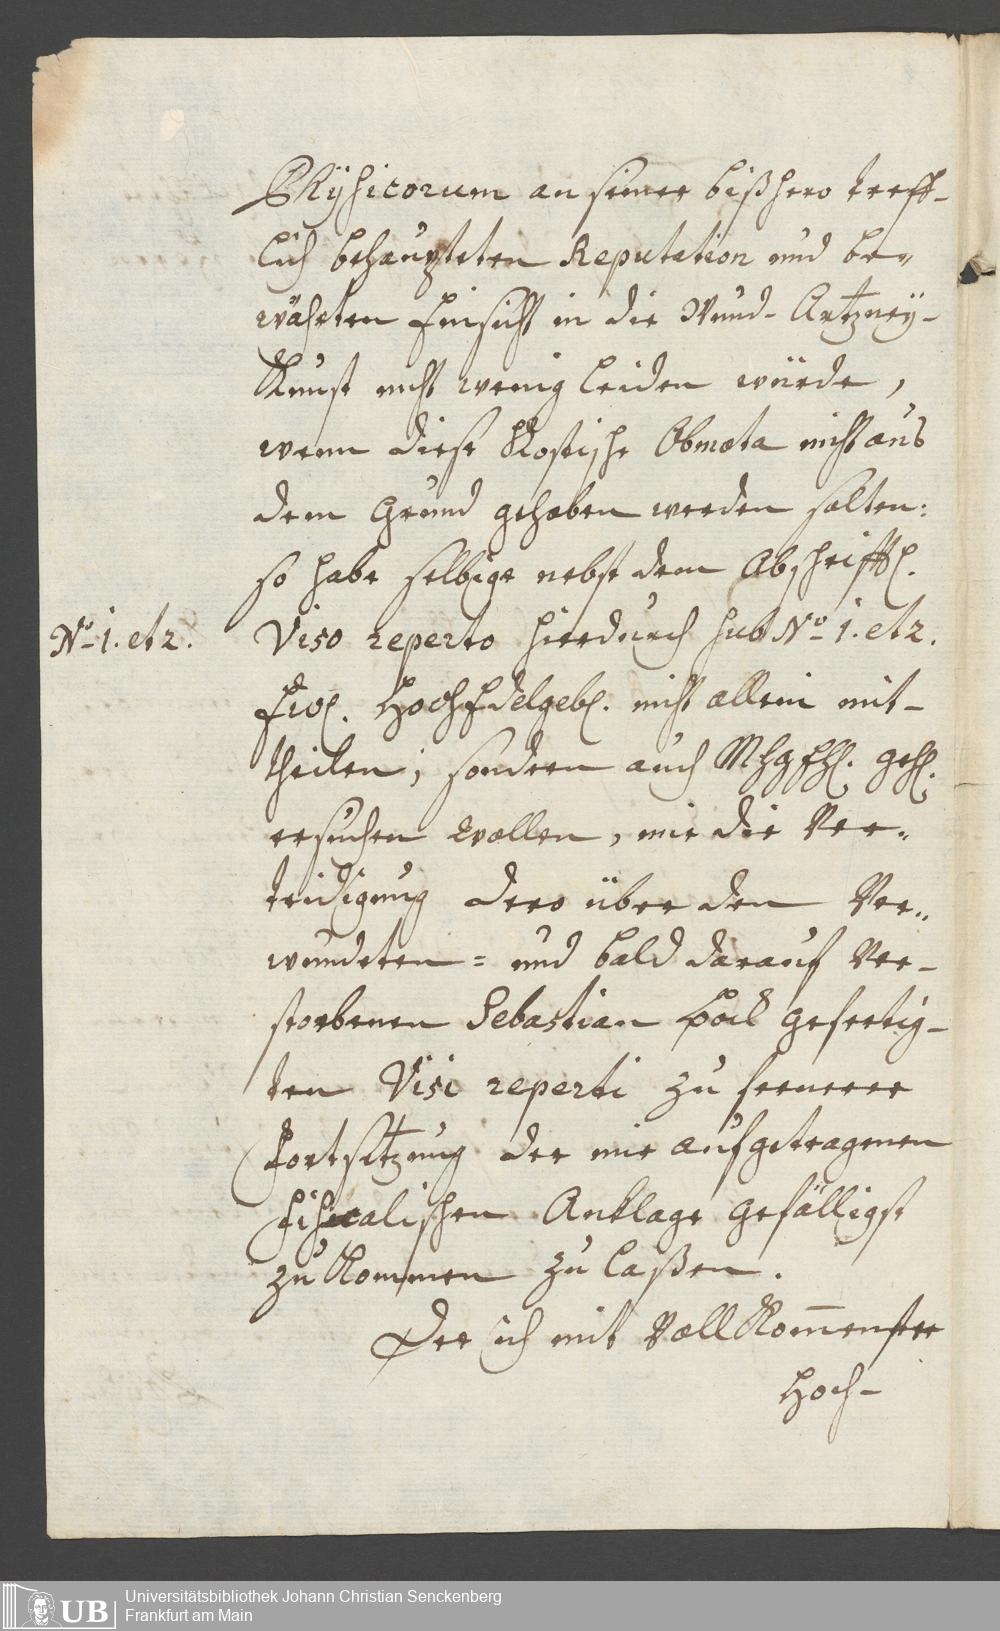 Physicorum an seiner bißhero treff-
lich behaupteten Reputation und be-
währten Einsicht in die Wund-Artzney-
Kunst nicht wenig leiden würde,
wenn diese Kostische Obmota nicht aus
dem Grund gehoben werden solten:
so habe selbige nebst dem Abschrifftl.
No. 1. et 2. Viso reperto hierdurch sub No. 1. et 2.
Ew. HochEdelgeb. nicht allein mit-
theilen, sondern auch MhgHh. geh.
ersuchen wollen, mir die Ver-
teidigung dero über den Ver-
wundeten= und bald darauf Ver-
storbenen Sebastian gefertig-
ten Visi reperti zu fernerer
Fortsetzung der mir aufgetragenen
fiscalischen Anklage gefälligst
zu kommen zu laßen.
Der ich mit Vollkommenster
Hoch-
Universitätsbibliothek Johann Christian Senckenberg
Frankfurt am Main
UB